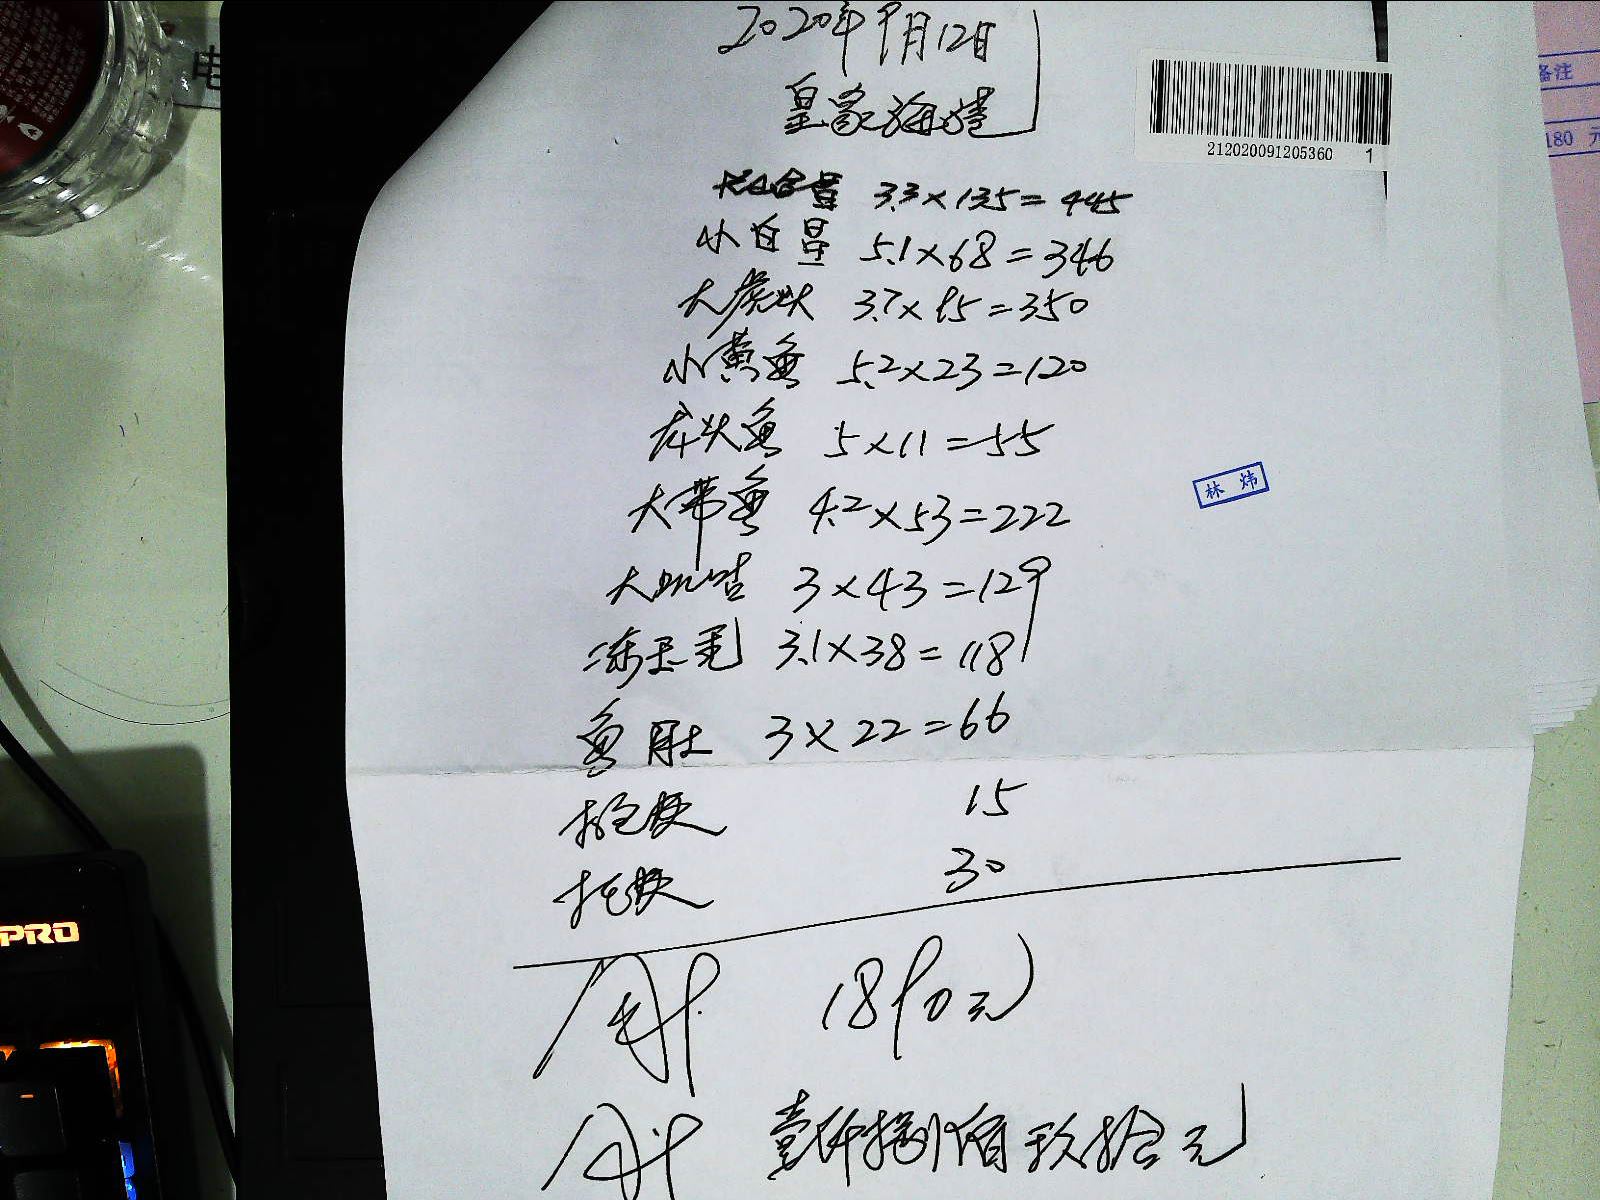 2020年9月12日
皇家海港
212020091205360 1
备注
180 元
电
3.3×135=445
小白鲳 5.1×68=346
大虎头 3.7×95=350
小黄鱼 5.2×23=120
龙头鱼 5×11=55
大带鱼 4.2×53=222
大 3×43=129
冻 3.1×38=118
鱼肚 3×22=66
15
30
林炜
合计 1890元
合计 壹仟捌佰玖拾元
PRO